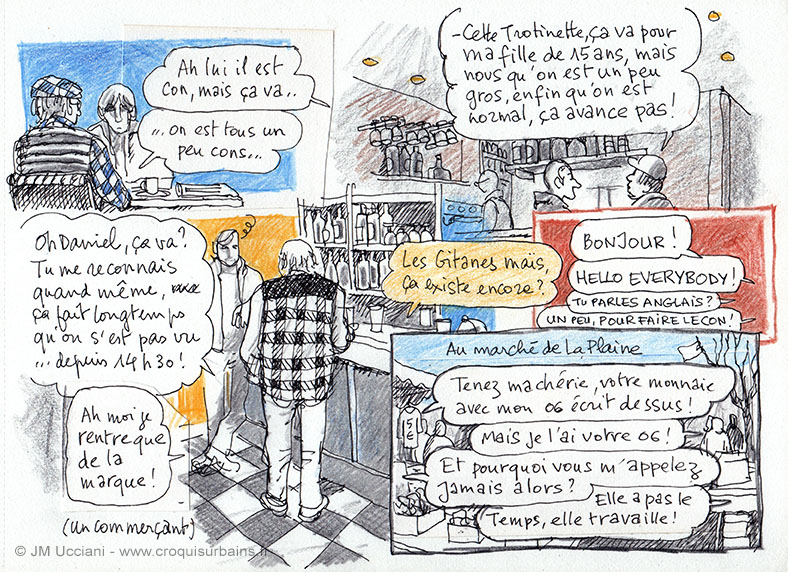 Ah lui il est
con, mais ça va..
... on est tous un
peu cons...
- Cette Trotinette, ça va pour
ma fille de 15 ans, mais
nous qu'on est un peu
gros, enfin qu'on est
normal, ça avance pas!
Oh Daniel, ça va?
Tu me reconnais
quand même,
ça fait longtemps
qu'on s'est pas vu
... depuis 14h30!
Les Gitanes maïs,
ça existe encore?
BONJOUR!
HELLO EVERYBODY!
TU PARLES ANGLAIS?
UN PEU, POUR FAIRE LE CON!
Ah moi je
rentre que
de la
marque!
(un commerçant)
Au marché de La Plaine
Tenez ma chérie, votre monnaie
avec mon 06 écrit dessus!
Mais je l'ai votre 06!
Et pourquoi vous m'appelez
jamais alors?
Elle a pas le
Temps, elle travaille!
© JM Ucciani - www.croquisurbains.fr